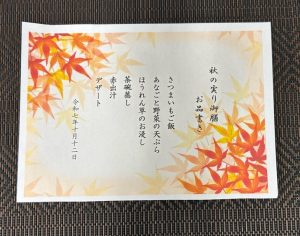 秋の実り御膳
お品書き
さつまいもご飯
あなごと野菜の天ぷら
ほうれん草のお浸し
茶碗蒸し
赤出汁
デザート
令和七年十月十二日